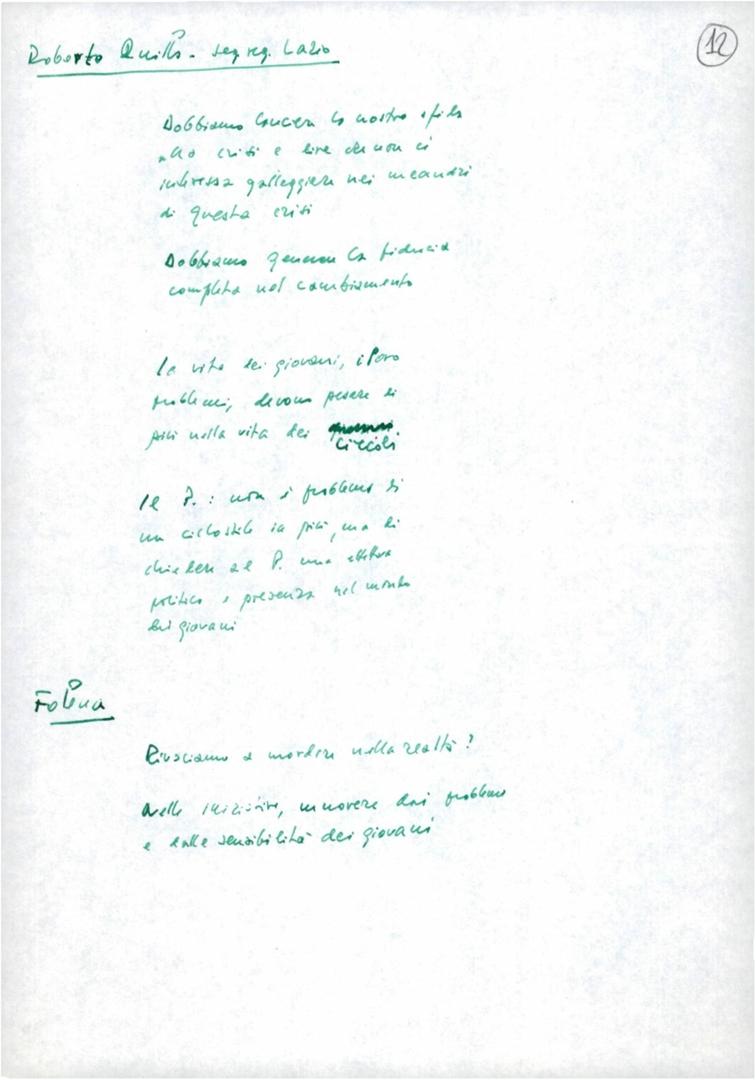 12
Roberto Quillo - segreg. Lazio
Dobbiamo lanciare la nostra sfida
alla crisi e dire che non ci
interessa galleggiare nei meandri
di questa crisi
Dobbiamo generare la fiducia
completa nel cambiamento
la vita dei giovani, i loro
problemi, devono pesare di
più nella vita dei
circoli
il P.: non è problema di
un ciclostile in più, ma di
chiedere al P. una
politica e presenza nel mondo
dei giovani
Folena
Riusciamo a mordere nella realtà?
Nelle iniziative, muovere dai problemi
e dalle sensibilità dei giovani